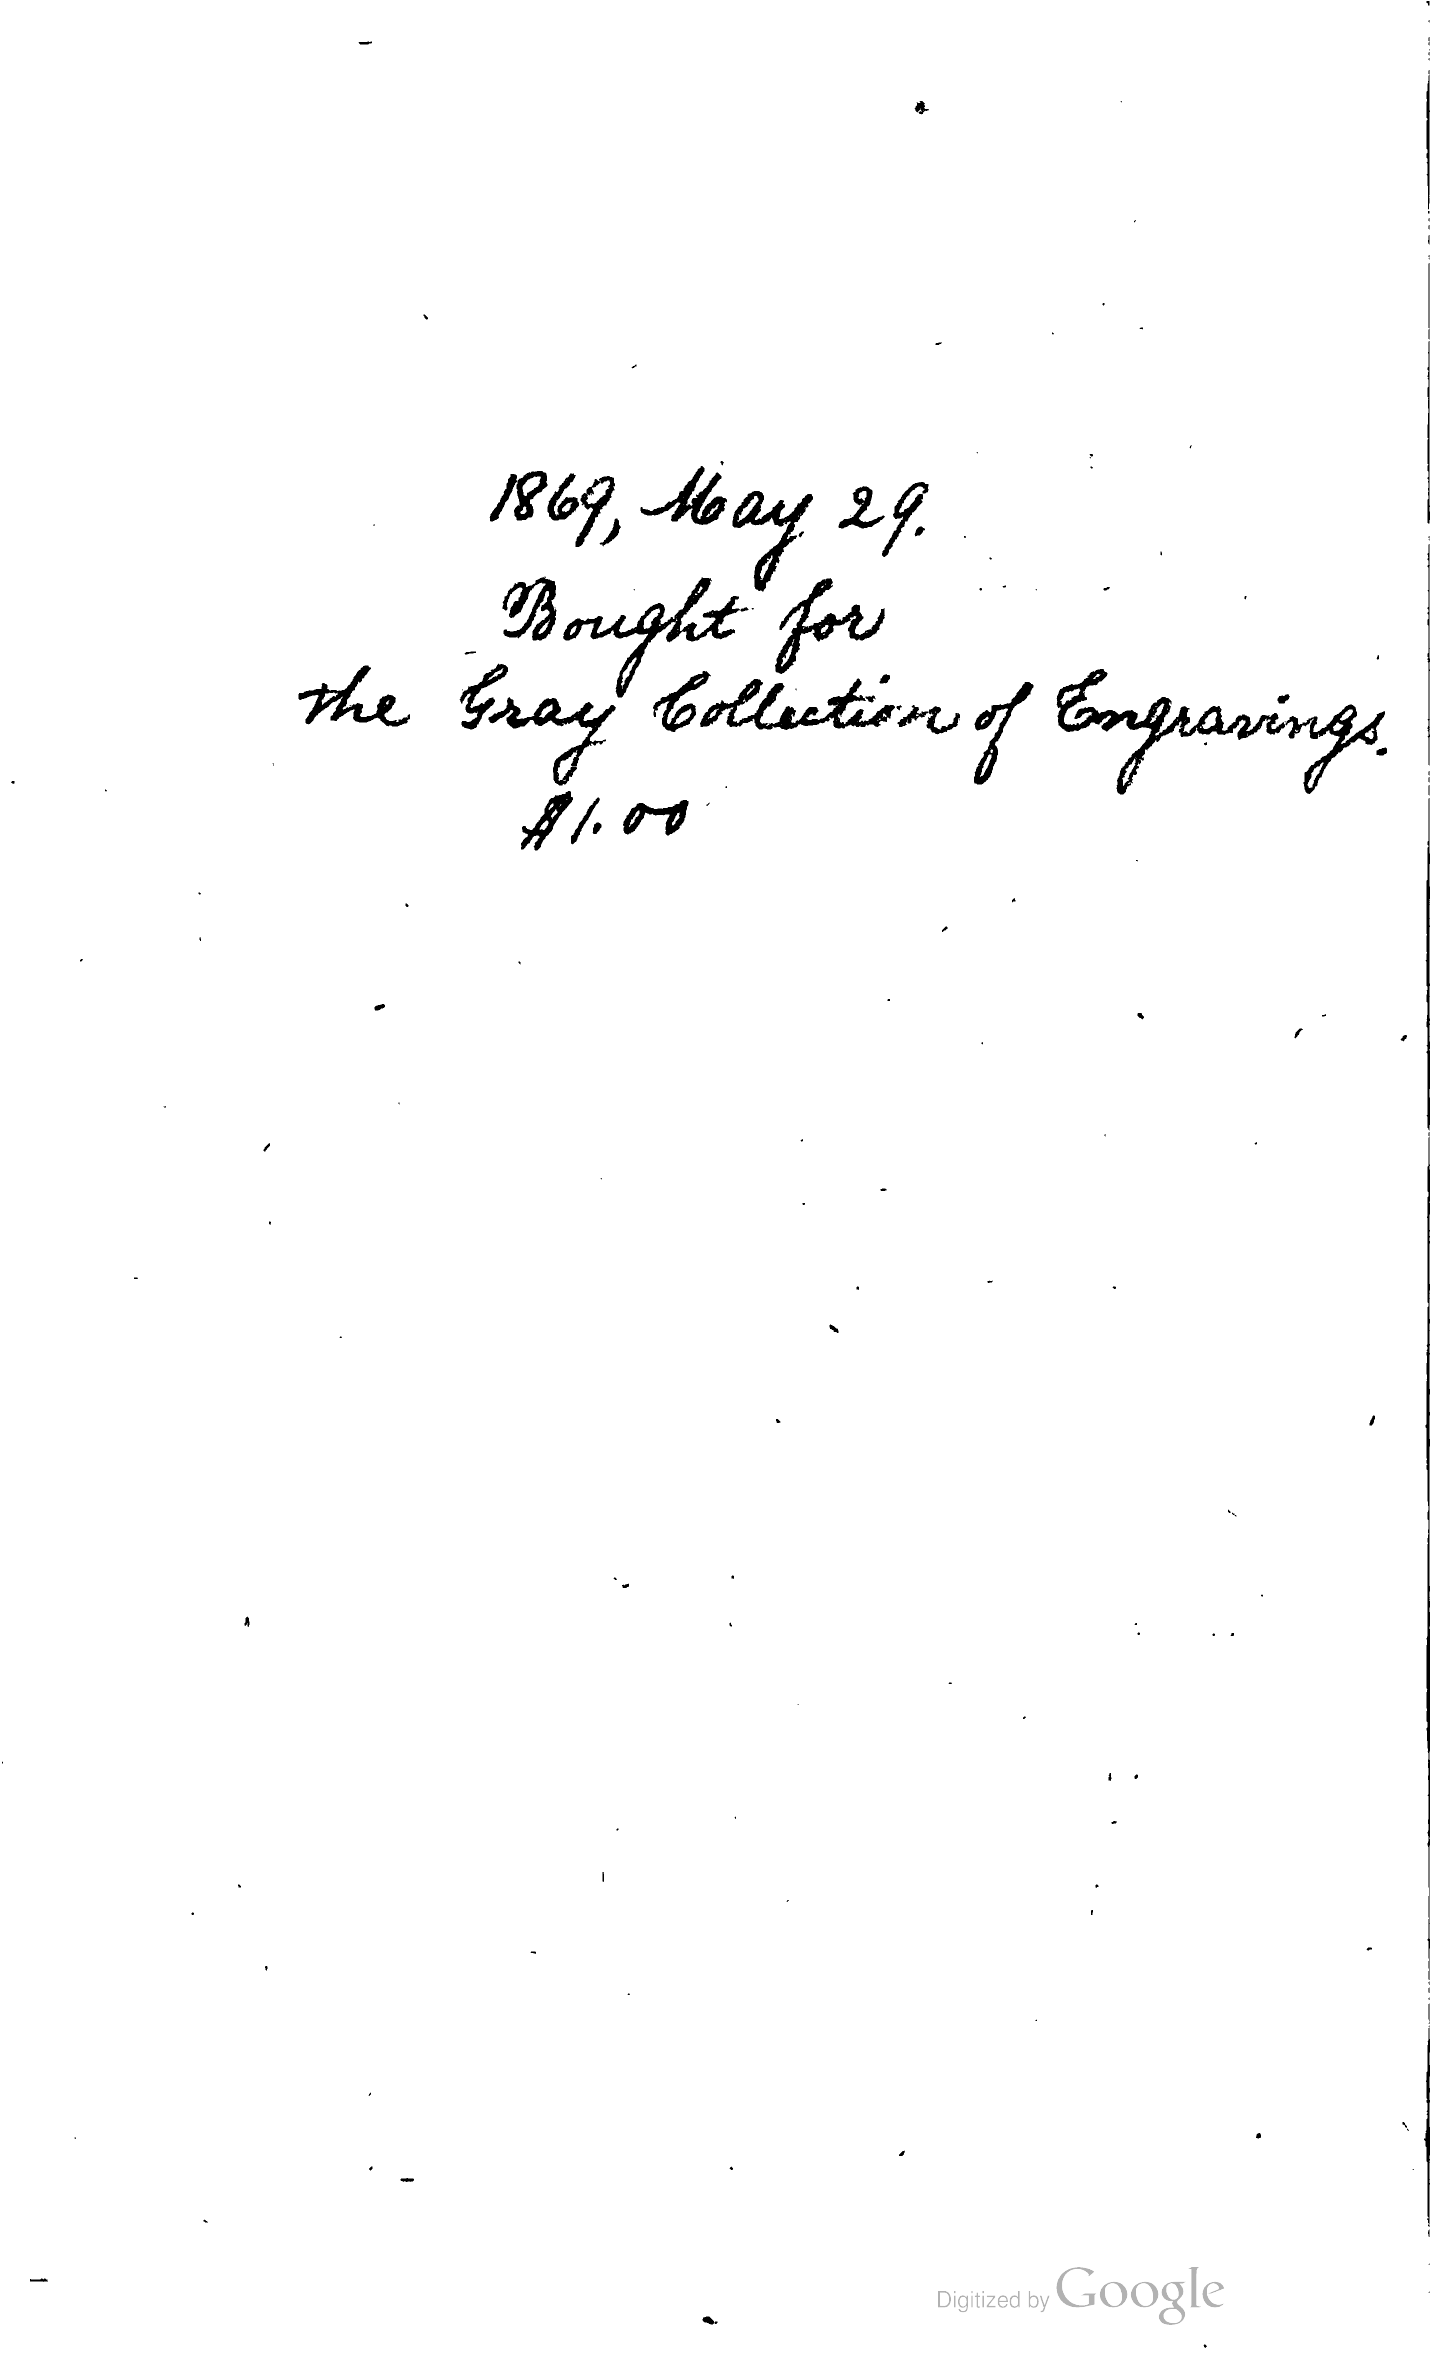 1869, May 29.
Bought for
the Gray Collection of Engravings.
$1.00
Digitized by Google